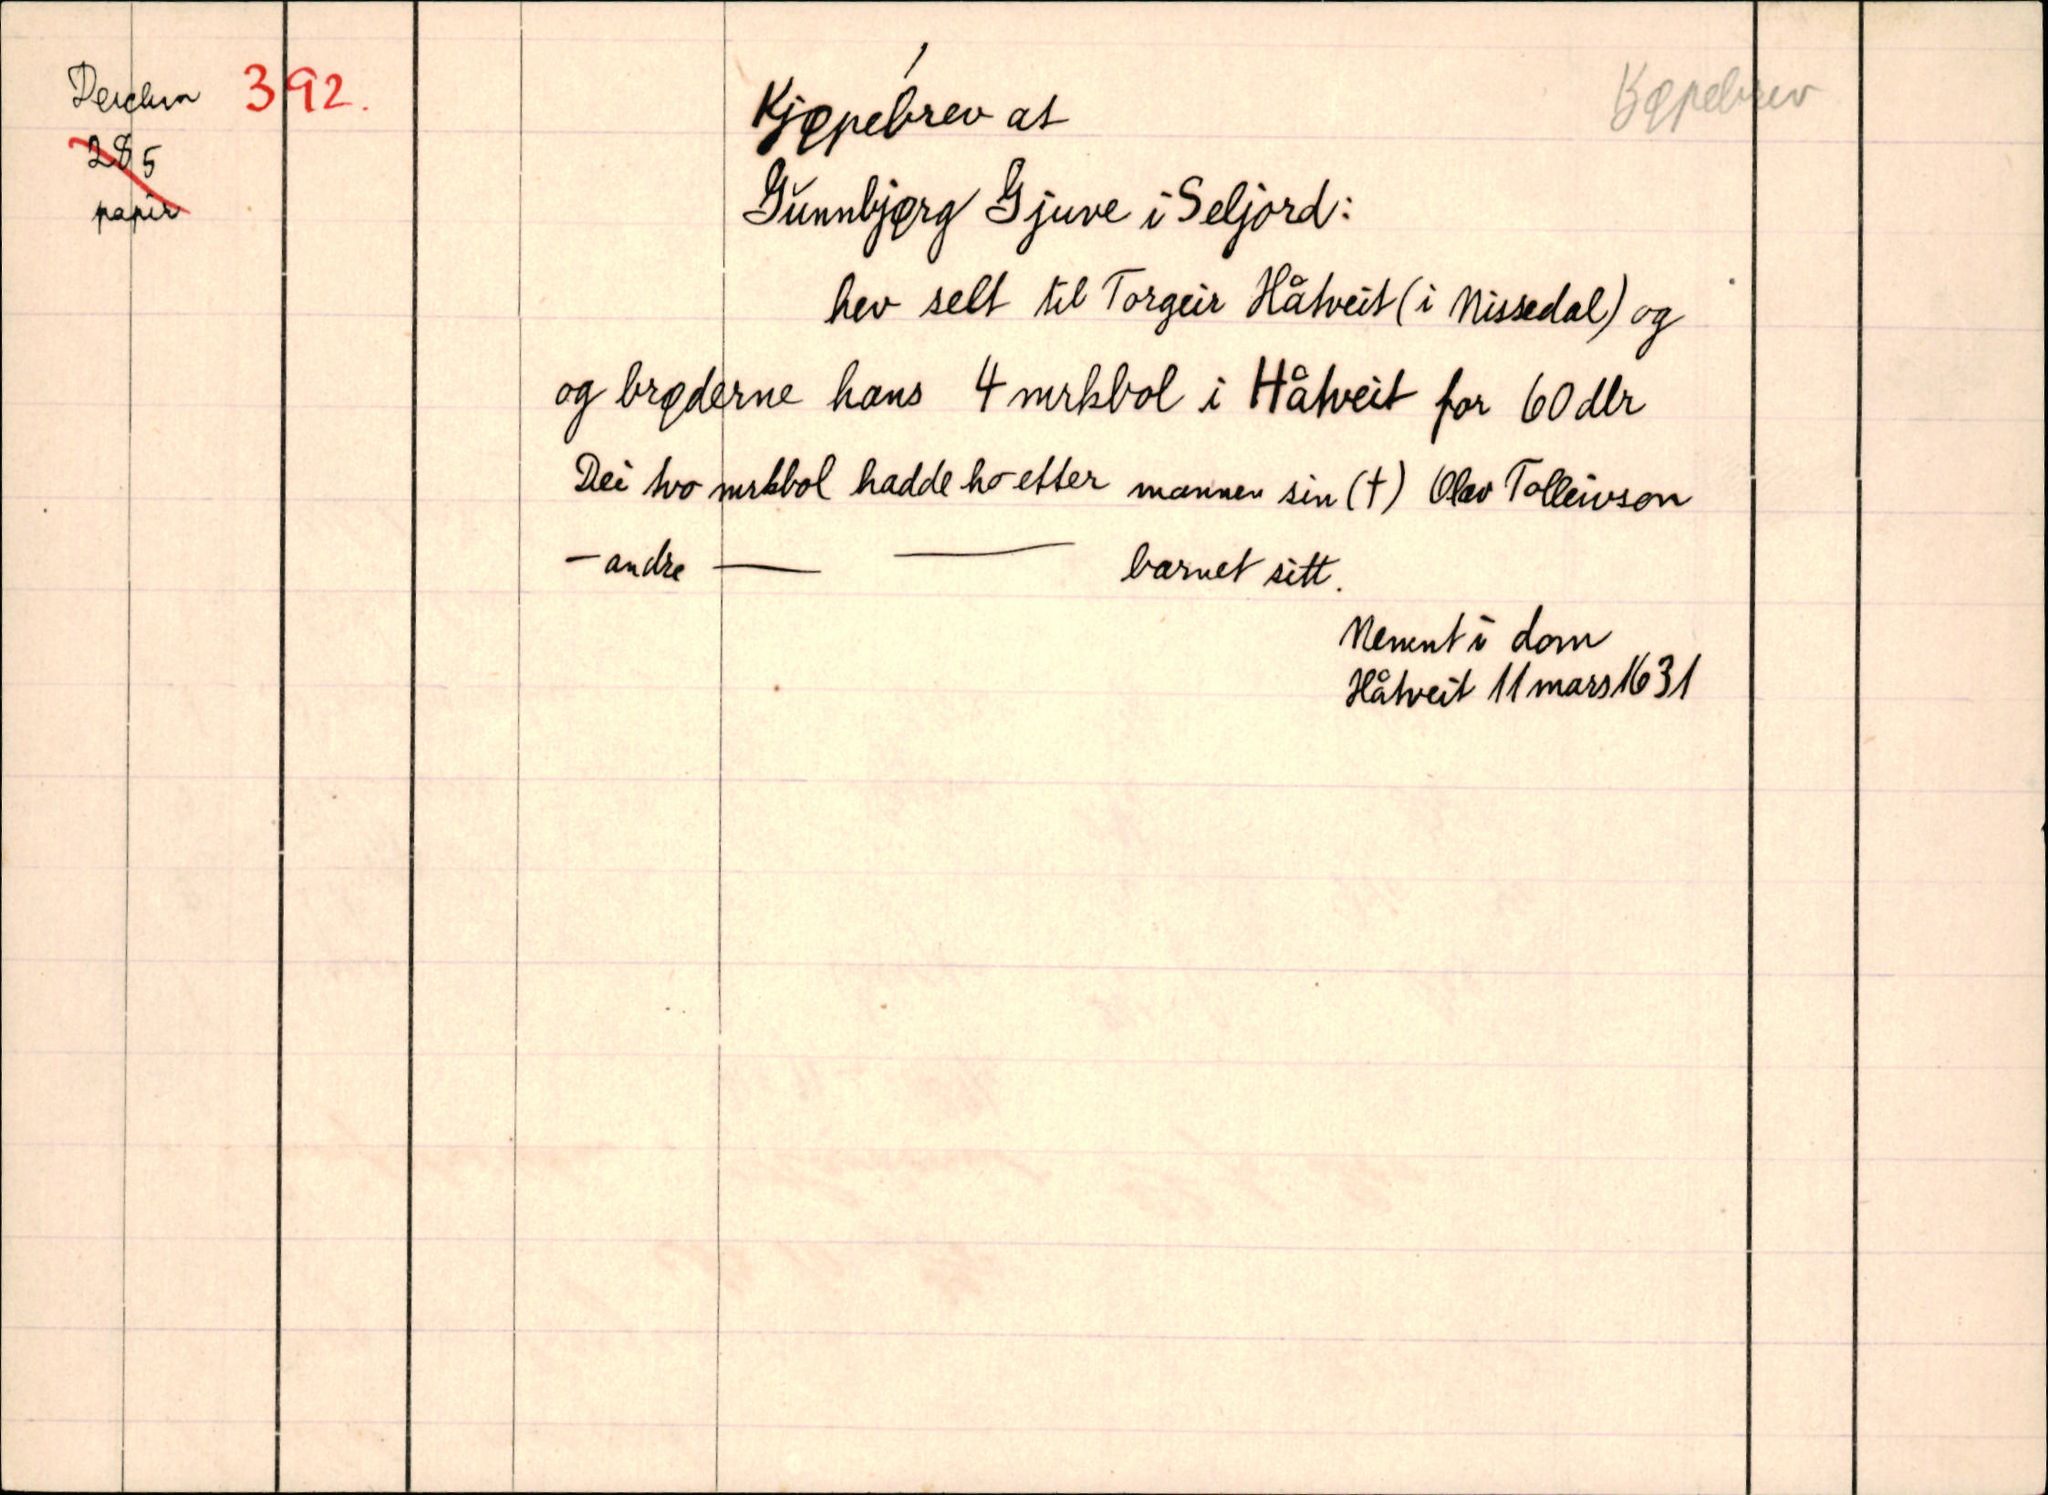 392.
285
papir
Kjøpebrev
Kjøpebrev at
Gŭnnbjørg Gjuve i Seljord:
hev selt til Torgeir Håtveit (i Nissedal) og
og brøderne hans 4 mrkbol i Håtveit for 60 dlr
Dei tvo mrkbol hadde ho etter mannen sin (†) Olav Tolleivson
— andre — — barnet sitt.
Nemnt i dom
Håtveit 11 mars 1631